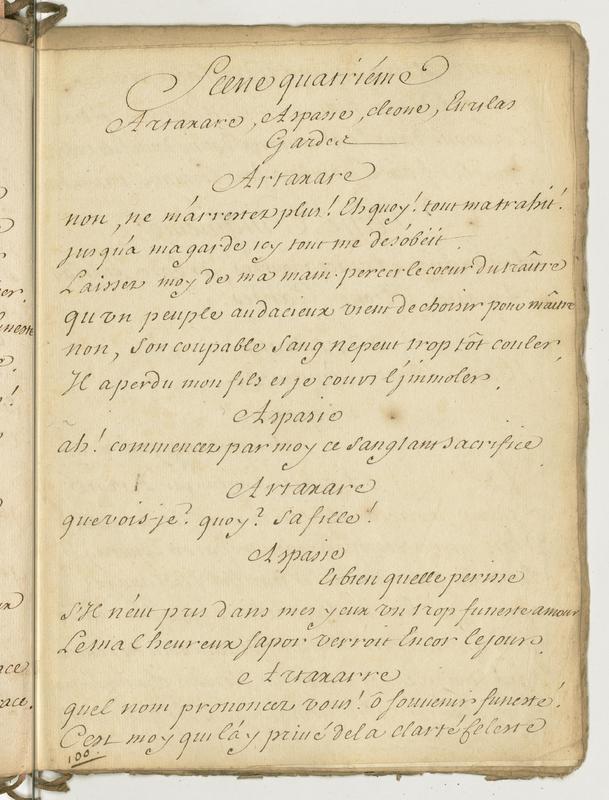 Scene quatriéme
Artaxare, Aspasie, cleone, Eurilas
Gardes
Artaxare
non, ne m'arrestez plus! Eh quoy! tout ma trahit!
jusqu'a ma garde icy tout me desobéit.
Laissez moy de ma main percer le coeur du traître
qu'un peuple audacieux vient de choisir pour maître
non, son coupable sang ne peut trop tôt couler,
Il a perdu mon fils et je cours l'jmmoler.
Aspasie
ah! commencez par moy ce sanglant sacrifice
Artaxare
que vois-je? quoy? sa fille!
Aspasie
Et bien quelle perisse
s'Il n'eut pris dans mes yeux un trop funeste amour
Le malheureux sapor verroit Encor le jour.
Artaxarre
quel nom prononcez vous! ô souvenir funeste!
C'est moy qui l'áy privé de la clarté Céleste
100.
ace
race.